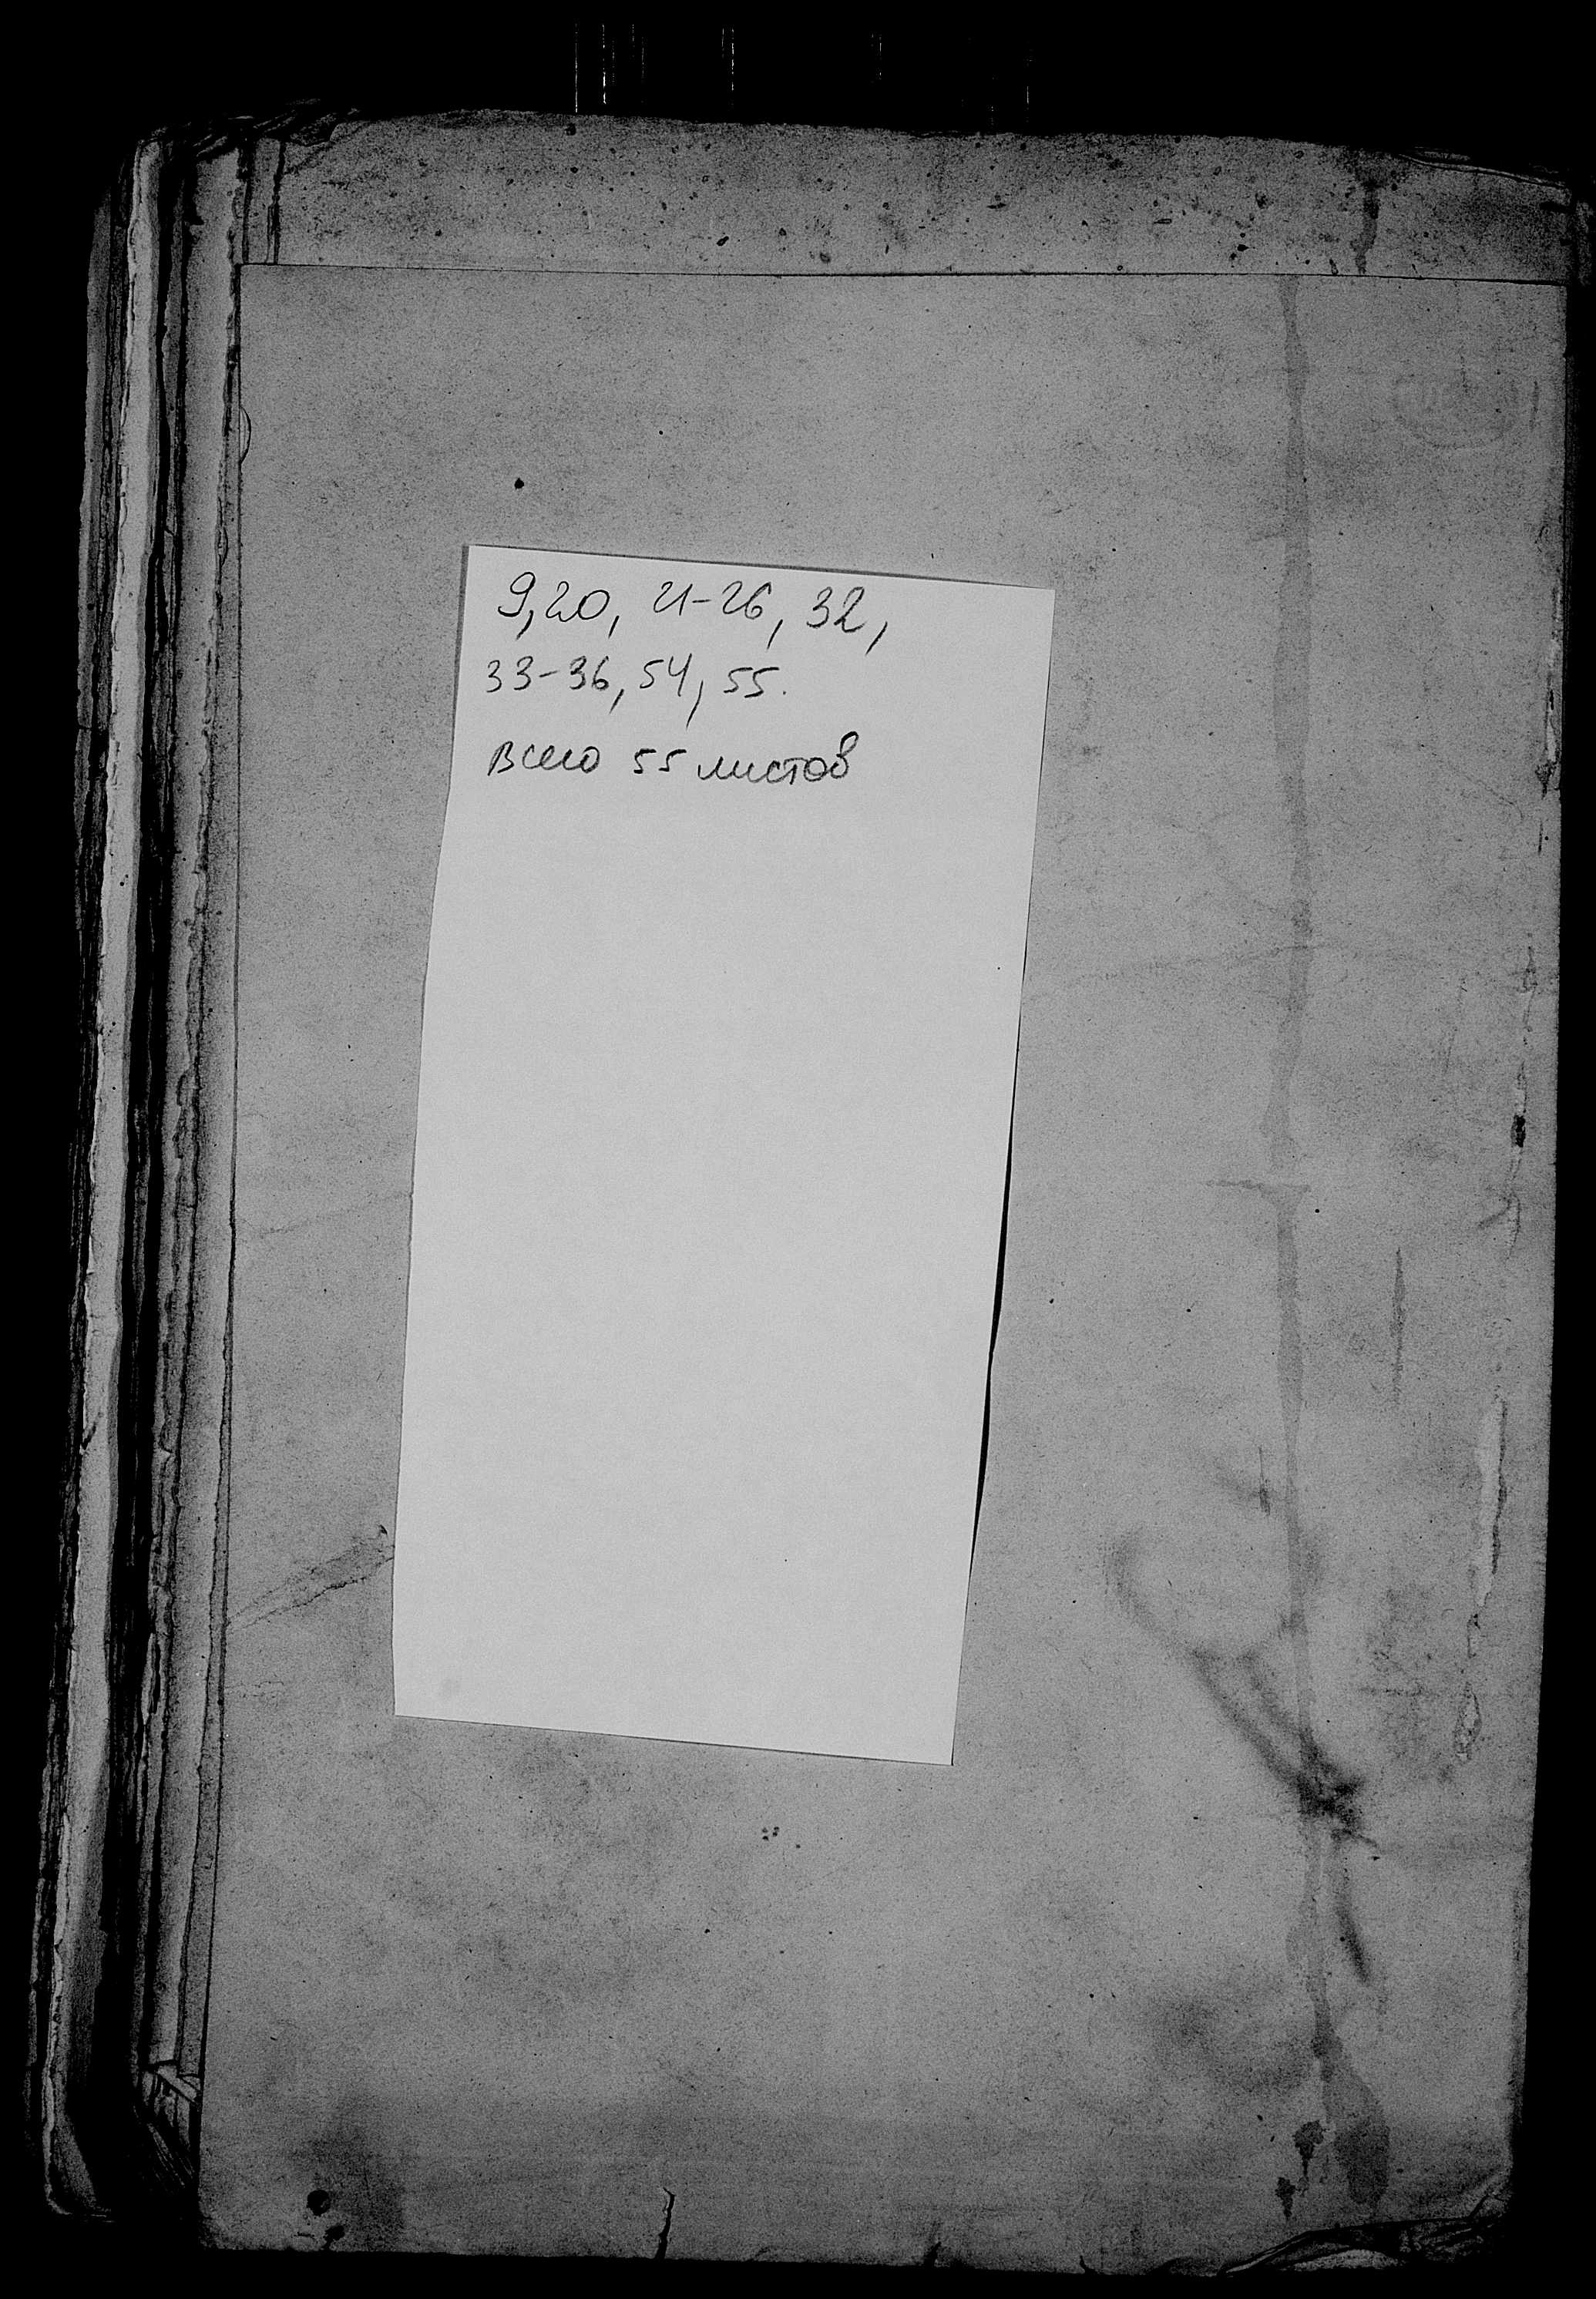 9, 20, 21-26, 32,
33-36, 54, 55.
Всего 55 листов